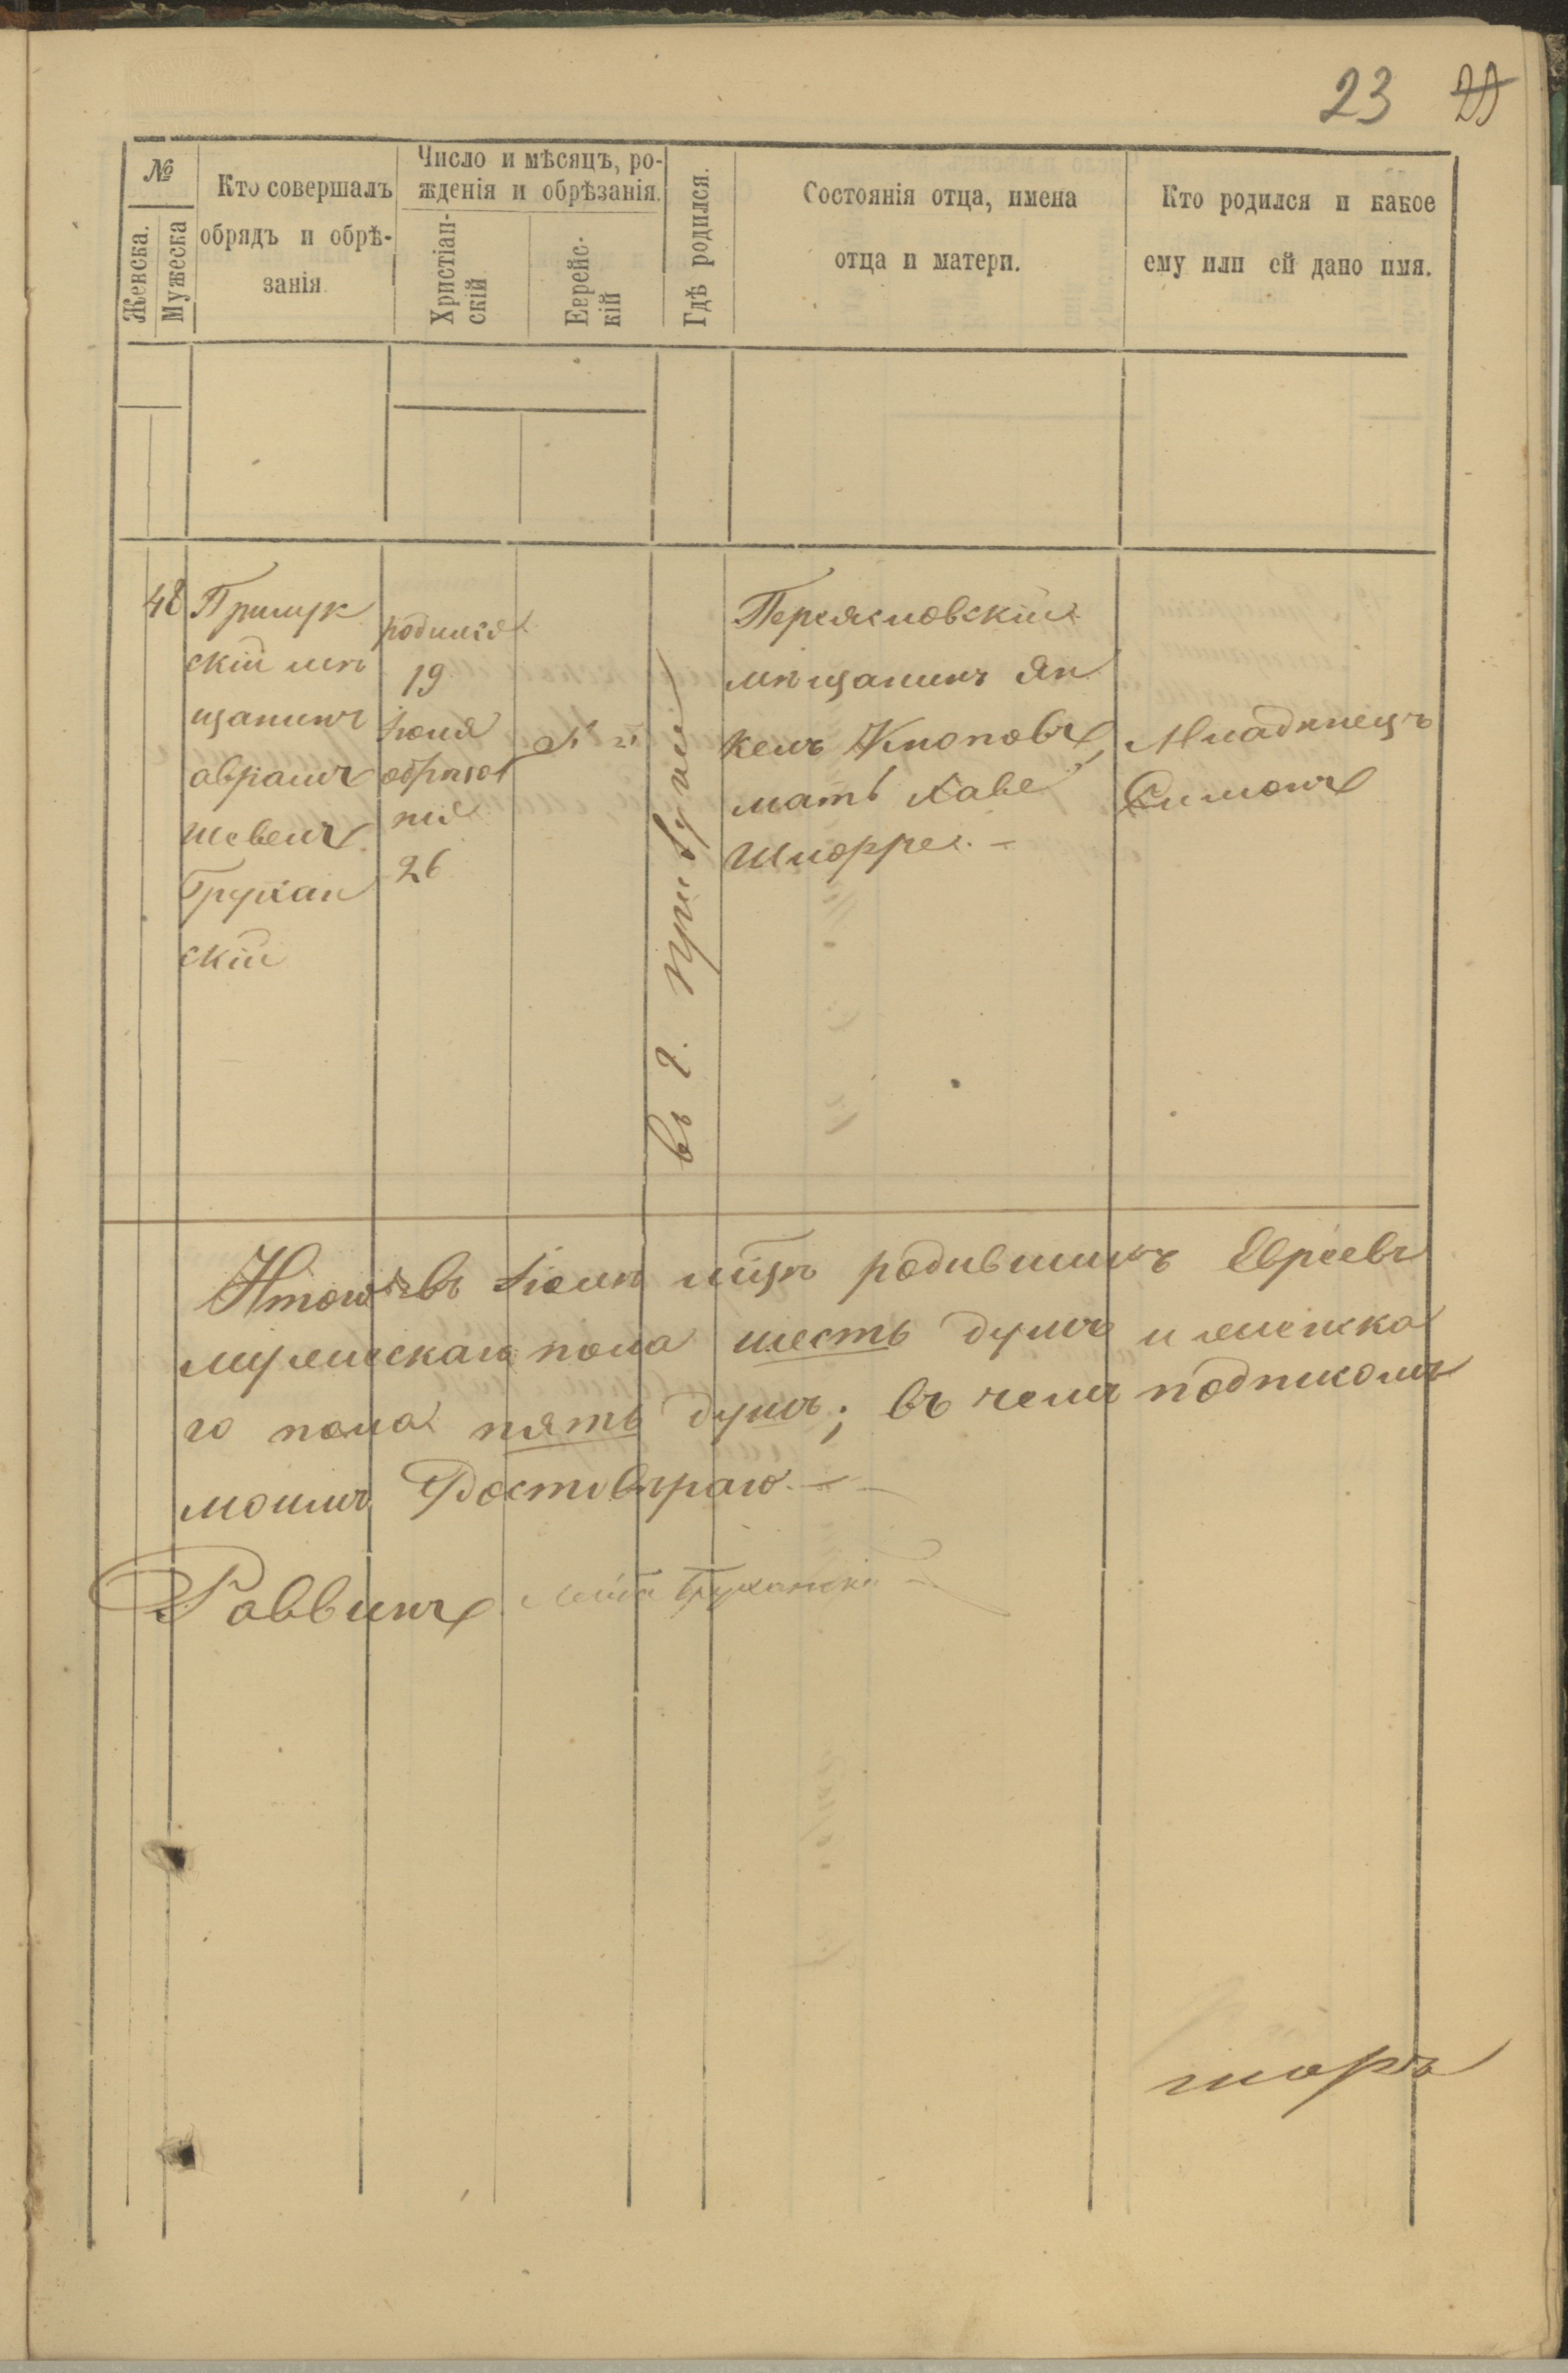 23
№
Женска.
Мужеска
Кто совершалъ
обрядъ и обрѣ-
занія
Число и мѣсяцъ, ро-
жденія и обрѣзанія.
Христіан-
скій
Еврейс-
кій
Гдѣ родился.
Состоянія отца, имена
отца и матери.
Кто родился и какое
ему или ей дано имя.
48
Прилук
скій мѣ
щанинъ
Абрамъ
Трухан
скій
родился
19
Іюля
обрѣзов
26
въ г. Прилуки
Переясловскій
мѣщанинъ Ян
кель Кноповъ,
мать Хаве
Младѣнецъ
Симонъ
Итого въ Іюлѣ мѣцѣ родившихъ Евреевъ
мужескаго пола шесть душъ и женска
го пола пять душъ; въ чемъ подписомъ
моимъ Достовѣраю. —
Раввинъ Труханскій